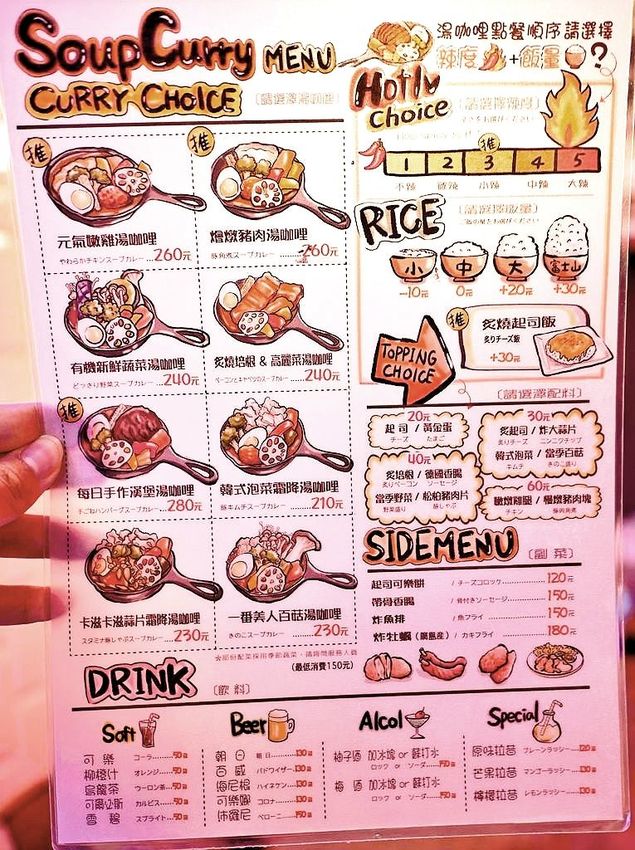 Soup Curry MENU
CURRY CHOICE
湯咖哩點餐順序請選擇
辣度 + 飯量 ?
Hotly Choice
推
1 2 3 4 5
不辣 微辣 小辣 中辣 大辣
推
元氣嫩雞湯咖哩
やわらかチキンスープカレー...260元
推
燉豬肉湯咖哩
豚角煮スープカレー...260元
有機新鮮蔬菜湯咖哩
どっさり野菜スープカレー...240元
炙燒培根 & 高麗菜湯咖哩
ベーコンとキャベツのスープカレー...240元
推
每日手作漢堡湯咖哩
手ごねハンバーグスープカレー...280元
韓式泡菜霜降湯咖哩
豚キムチスープカレー...210元
卡滋卡滋蒜片霜降湯咖哩
スタミナ豚しゃぶスープカレー...230元
一番美人百菇湯咖哩
きのこスープカレー...230元
(最低消費150元)
RICE
小 中 大 富士山
-10元 0元 +20元 +30元
推
炙燒起司飯
炙りチーズ飯
+30元
TOPPING CHOICE
〔請選擇配料〕
20元
起司 / 黃金蛋
チーズ たまご
30元
炙起司 / 炸大蒜片
炙りチーズ ニンニクチップ
韓式泡菜 / 當季百菇
キムチ きのこ盛り
40元
炙培根 / 德國香腸
炙りベーコン ソーセージ
當季野菜 / 松柏豬肉片
野菜盛り 豚しゃぶ
60元
嫩燉雞腿 / 慢燉豬肉塊
チキン 豚角煮
SIDEMENU 〔副菜〕
起司可樂餅 / チーズコロッケ...120元
帶骨香腸 / 骨付きソーセージ...150元
炸魚排 / 魚フライ...150元
炸牡蠣(廣島産) / カキフライ...180元
DRINK 〔飲料〕
Soft
可樂 コーラ...50元
柳橙汁 オレンジ...50元
烏龍茶 ウーロン茶...50元
可爾必斯 カルピス...50元
雪碧 スプライト...50元
Beer
朝日 朝日...130元
百威 バドワイザー...130元
海尼根 ハイネケン...130元
可樂娜 コロナ...130元
沛羅尼 ペローニ...150元
Alcol
柚子酒 加冰塊 or 蘇打水
ロック or ソーダ...150元
梅酒 加冰塊 or 蘇打水
ロック or ソーダ...150元
Special
原味拉昔 プレーンラッシー...120元
芒果拉昔 マンゴーラッシー...130元
檸檬拉昔 レモンラッシー...130元